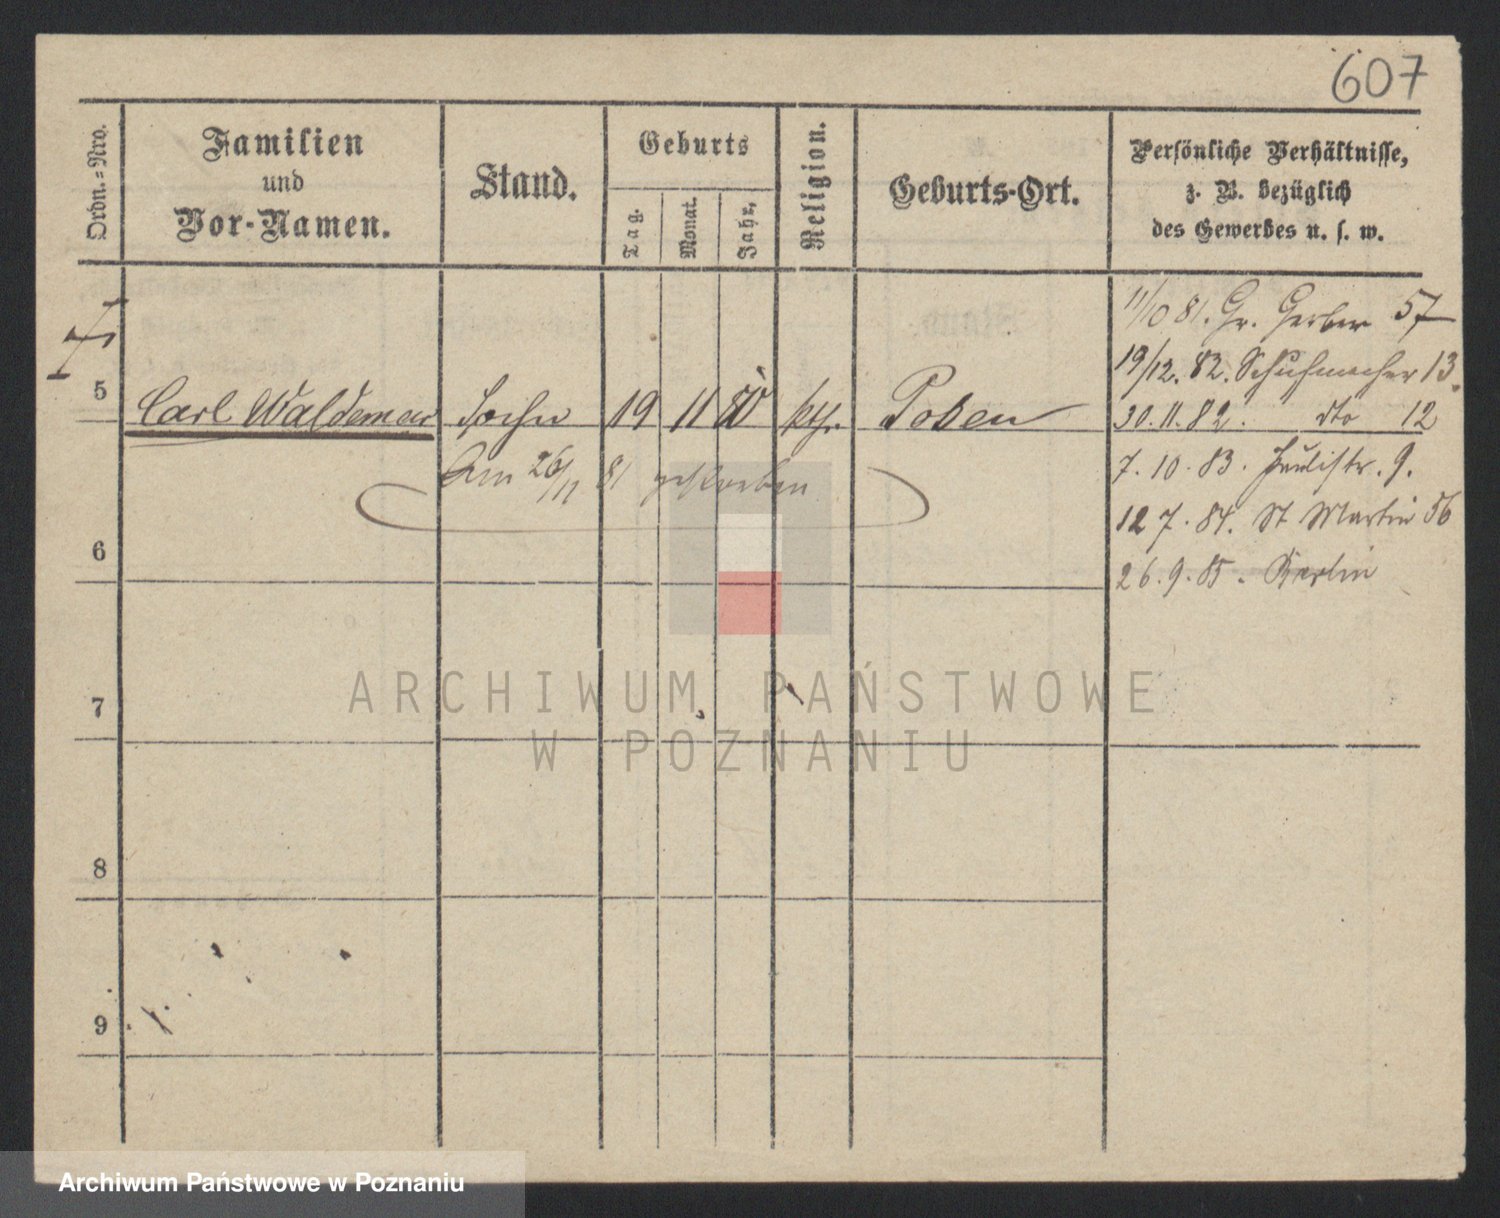 607
Ordn.-Nro.
Familien
und
Vor-Namen.
Stand.
Geburts
Tag.
Monat.
Jahr,
Religion.
Geburts-Ort.
Persönliche Verhältnisse,
z. B. bezüglich
des Gewerbes u. s. w.
5
Carl Waldemar Sohn 19 11 80 kth. Posen
Am 26/11 81 gestorben
11/10 81. Gr. Gerber 57
19/12. 82. Schuhmacher 13.
30. 11. 82. dto 12
7. 10. 83. Paulistr. 9.
12 7. 84. St Martin 56
26. 9. 85. Berlin
6
7
8
9
ARCHIWUM PAŃSTWOWE
W POZNANIU
Archiwum Państwowe w Poznaniu